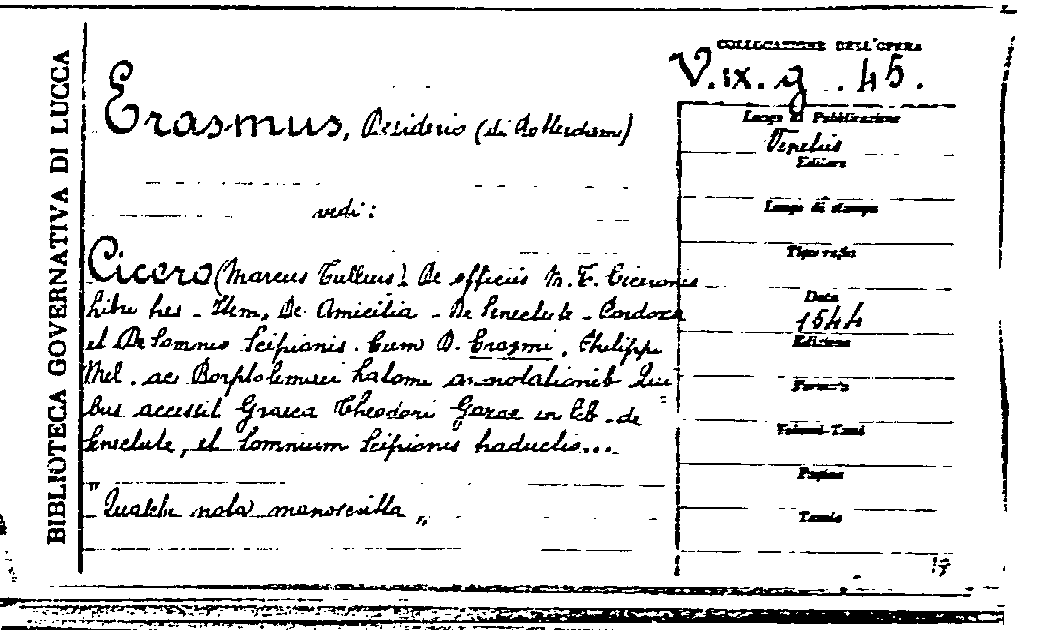 BIBLIOTECA GOVERNATIVA DI LUCCA
COLLOCAZIONE DELL'OPERA
V. IX. g. 45.
Erasmus, Desiderio (di Rotterdam)
vedi:
Cicero (Marcus Tullius). De officiis M. T. Ciceronis
libri tres - Item, De Amicitia - De Senectute -
et De Somnio Scipionis. Cum D. Erasmi, Philippi
Mel. ac annotationib Qui=
bus accessit Graeca Theodori Gazae in lib. de
Senectute, et Somnium Scipionis traductio...
"Qualche nota manoscritta"
Luogo di Pubblicazione
Venetiis
Editore
Luogo di stampa
Tipografia
Data
1544
Edizione
Formato
Volumi-Tomi
Pagine